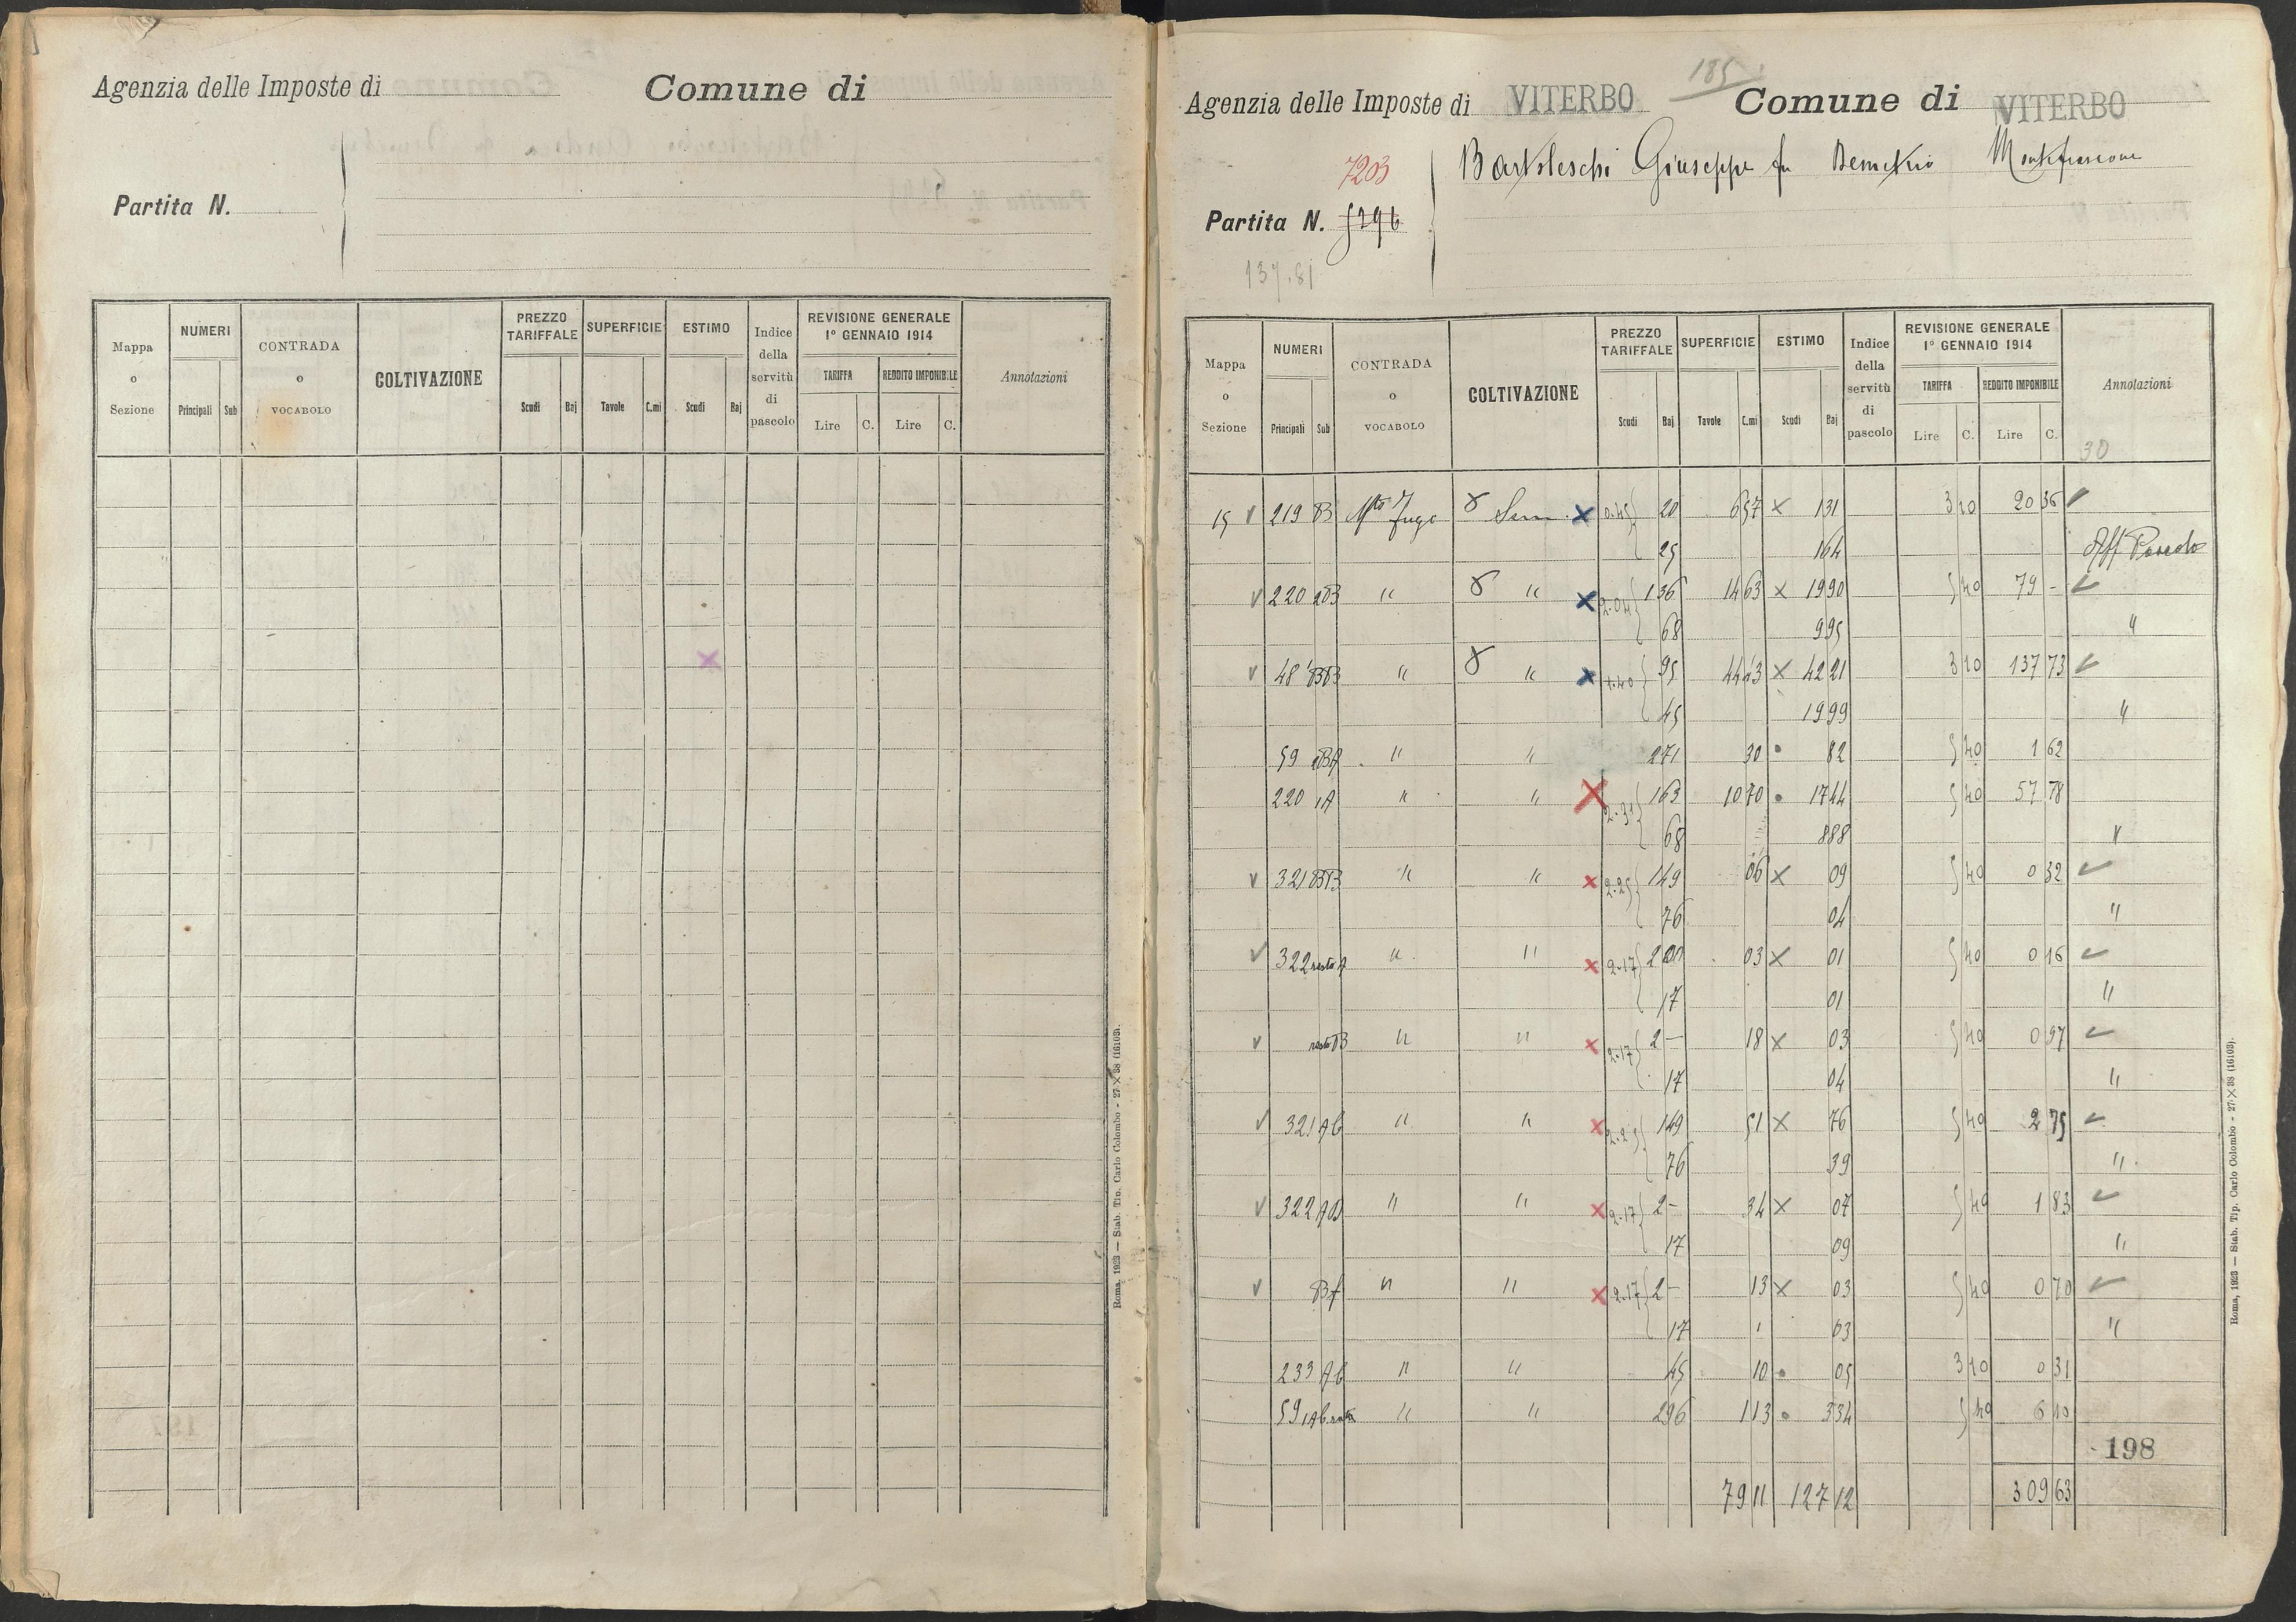 Agenzia delle Imposte di
Comune di
Partita N.
Mappa o Sezione
NUMERI
Principali
Sub
CONTRADA o VOCABOLO
COLTIVAZIONE
PREZZO TARIFFALE
Scudi
Baj
SUPERFICIE
Tavole
C.mi
ESTIMO
Scudi
Baj
Indice della servitù di pascolo
REVISIONE GENERALE 1° GENNAIO 1914
TARIFFA
Lire C.
REDDITO IMPONIBILE
Lire C.
Annotazioni
Roma, 1923 — Stab. Tip. Carlo Colombo - 27×38 (16103).
185
Agenzia delle Imposte di VITERBO
Comune di VITERBO
7203
Bartoleschi Giuseppe fu Demetrio Montefiascone
Partita N. 5296
137.81
Mappa o Sezione
NUMERI
Principali
Sub
CONTRADA o VOCABOLO
COLTIVAZIONE
PREZZO TARIFFALE
Scudi
Baj
SUPERFICIE
Tavole
C.mi
ESTIMO
Scudi
Baj
Indice della servitù di pascolo
REVISIONE GENERALE 1° GENNAIO 1914
TARIFFA
Lire C.
REDDITO IMPONIBILE
Lire C.
Annotazioni
30
15 v 219 B Mte Jugo Sem. x 0.45 20 657 x 131 3 10 20 36
25 164 Aff Paredo
v 220 2B " " x 2.04 136 14 63 x 19 90 5 40 79 -
68 9 95 "
v 48 BB " " x 1.40 95 44 43 x 42 21 3 10 137 73
45 19 99 "
59 BA " " 271 30 82 5 40 1 62
220 1A " " x 2.31 163 10 70 17 44 5 40 57 78
68 8 88 "
v 321 BB " " x 2.25 149 06 x 09 5 40 0 32
76 04 "
v 322 resto A " " x 2.17 200 03 x 01 5 40 0 16
17 01 "
v resto B " " x 2.17 2 - 18 x 03 5 40 0 97
17 04 "
v 321 Ab " " x 2.25 149 51 x 76 5 40 2 75
76 39 "
v 322 " " x 2.17 2 - 34 x 07 5 40 1 83
17 09 "
v Bf " " x 2.17 2 - 13 x 03 5 40 0 70
17 03 "
233 Ab " " 45 10 05 3 10 0 31
59 1Ab resto " " 296 1 13 3 34 5 40 6 10
198
79 11 127 12 309 63
Roma, 1923 — Stab. Tip. Carlo Colombo - 27×38 (16103).